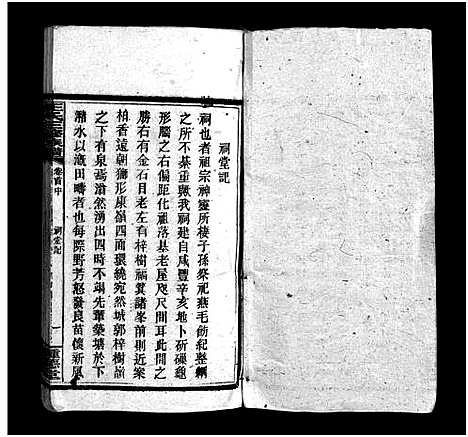 祠堂記
祠也者祖宗神靈所棲子孫祭祀燕毛飭紀整綱
之所不綦重與我祠建自咸豐辛亥地卜斫磜龜
形屬之右偏距化落基老屋咫尺間耳此間之
勝右有金石目老左有梓樹福箕諸峯前則近案
柏香遠朝獅形康嶺四面環繞宛然城郭梓樹嶺
之下有泉焉滃然湧出四時不竭先輩築塘於下
瀦水以溉田疇者也每際野芳怒發良苗懷新風
卷首中
祠堂記
一